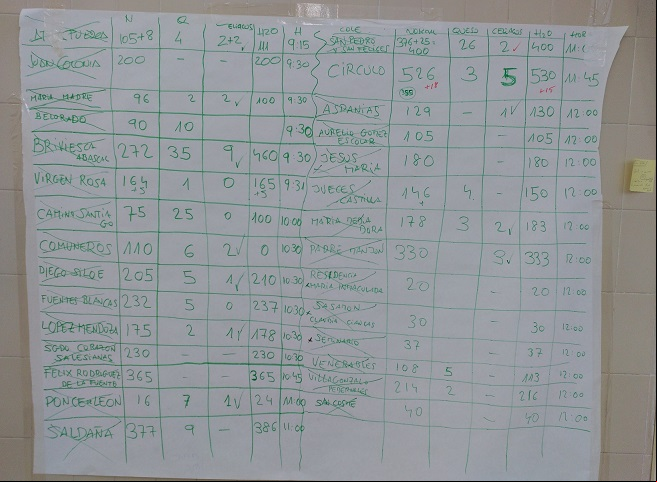 N Q CELIACOS H2O H
PUERAS 105+8 4 2+2✓ 111 9:15
JUAN COLONIA 200 — — 200 9:30
MARIA MADRE 96 2 2✓ 100 9:30
BELORADO 90 10 9:30
BRIVIESCA 272 35 9✓ 460 9:30
ABASCAL
VIRGEN ROSA 164 1 0 165 9:31
+3 +3
CAMINO SANTIA 75 25 0 100 10:00
GO
COMUNEROS 110 6 2✓ 0 10:30
DIEGO SILOE 205 5 1✓ 210 10:30
FUENTES BLANCAS 232 5 0 237 10:30
LOPEZ MENDOZA 175 2 1✓ 178 10:30
SGDO CORAZON 230 — — 230 10:30
SALESIANAS
FELIX RODRIGUEZ 365 — — 365 10:45
DE LA FUENTE
PONCE LEON 16 7 1✓ 24 11:00
SALDAÑA 377 9 — 386 11:00
COLE NORMAL QUESO CELIACOS H2O HOR
SAN PEDRO 376+25= 26 2✓ 400
Y SAN FELICES 400
CÍRCULO 526 3 5 530 11:45
+18 +15
155
ASPANIAS 129 — 1✓ 130 12:00
AURELIO GOMEZ 105 — 105 12:00
ESCOLAR
JESUS 180 — 180 12:00
MARIA
JUECES 146 4 — 150 12:00
CASTILLA
MARIA 178 3 2✓ 183 12:00
DORA
PADRE MANJON 330 3✓ 333 12:00
RESIDENCIA 20 — 20 12:00
MARIA INMACULADA
30 — 30 12:00
SEMINARIO 37 — 37 12:00
VENERABLES 108 5 — 113 12:00
VILLAGONZALO 214 2 — 216 12:00
PEDERNALES
SAN COSME 40 — 40 12:00